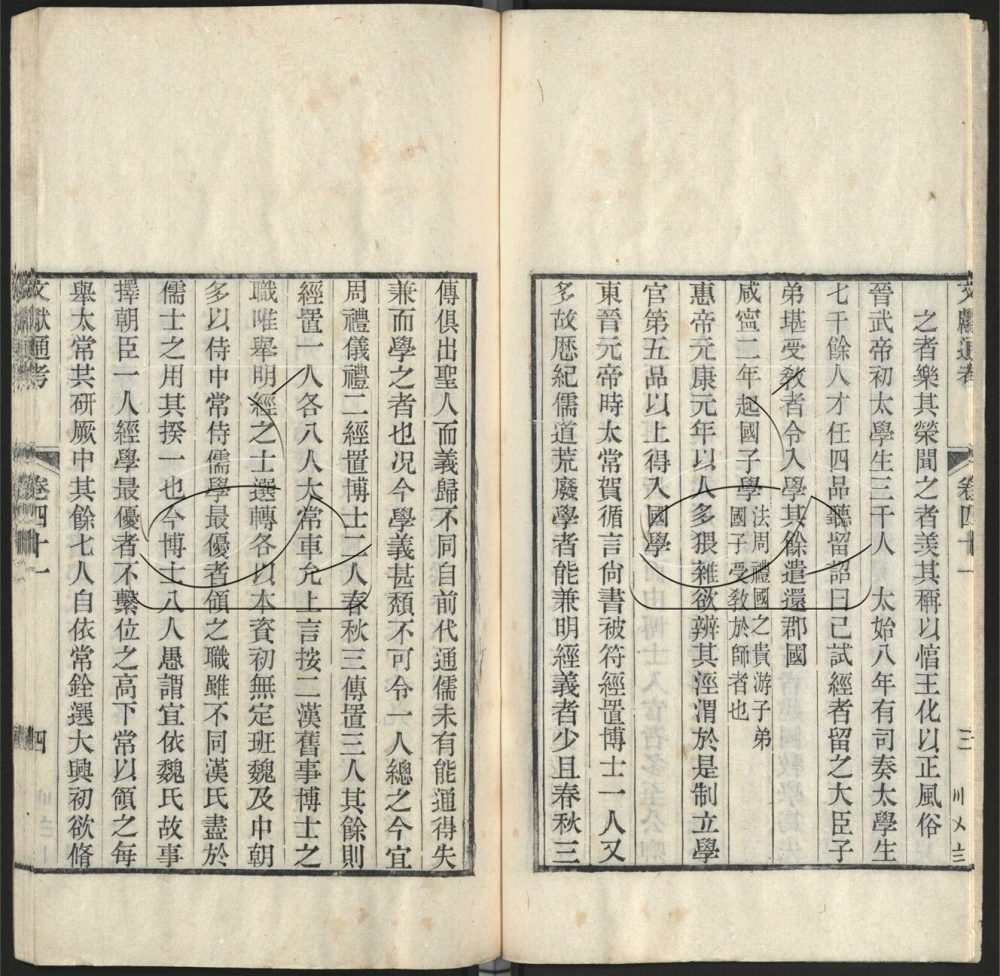 文獻通考 卷四十一 三
之者樂其榮聞之者羡其稱以惰王化以正風俗
晉武帝初太學生三千人 太始八年有司奏太學生
七千餘人才任四品聽留詔曰已試經者留之大臣子
弟堪受敎者令入學其餘遣還郡國
咸寧二年起國子學法周禮國之貴游子弟
國子受敎於師者也
惠帝元康元年以人多猥雜欲辨其涇渭於是制立學
官第五品以上得入國學
東晉元帝時太常賀循言尚書被符經置博士一人又
多故厯紀儒道荒廢學者能兼明經義者少且春秋三
傳俱出聖人而義歸不同自前代通儒未有能通得失
兼而學之者也况今學義甚頹不可令一人總之今宜
周禮儀禮二經置博士二人春秋三傳置三人其餘則
經置一人各八人太常車允上言按二漢舊事博士之
職唯舉明經之士選轉各以本資初無定班魏及中朝
多以侍中常侍儒學最優者領之職雖不同漢氏盡於
儒士之用其揆一也今博士八人愚謂宜依魏氏故事
擇朝臣一人經學最優者不繫位之高下常以領之每
舉太常共研厥中其餘七人自依常銓選大興初欲脩
文獻通考 卷四十一 四